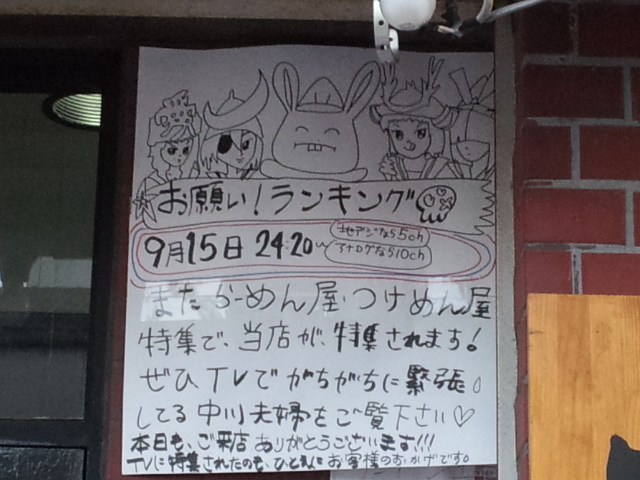 お願い!ランキング
9月15日 24:20〜
地デジなら5ch
アナログなら10ch
またらーめん屋・つけめん屋
特集で、当店が、特集されます!
ぜひTVでがちがちに緊張
してる中川夫婦をご覧下さい♡
本日も、ご来店ありがとうございます!!!
TVに特集されたのも、ひとえにお客様のおかげです。